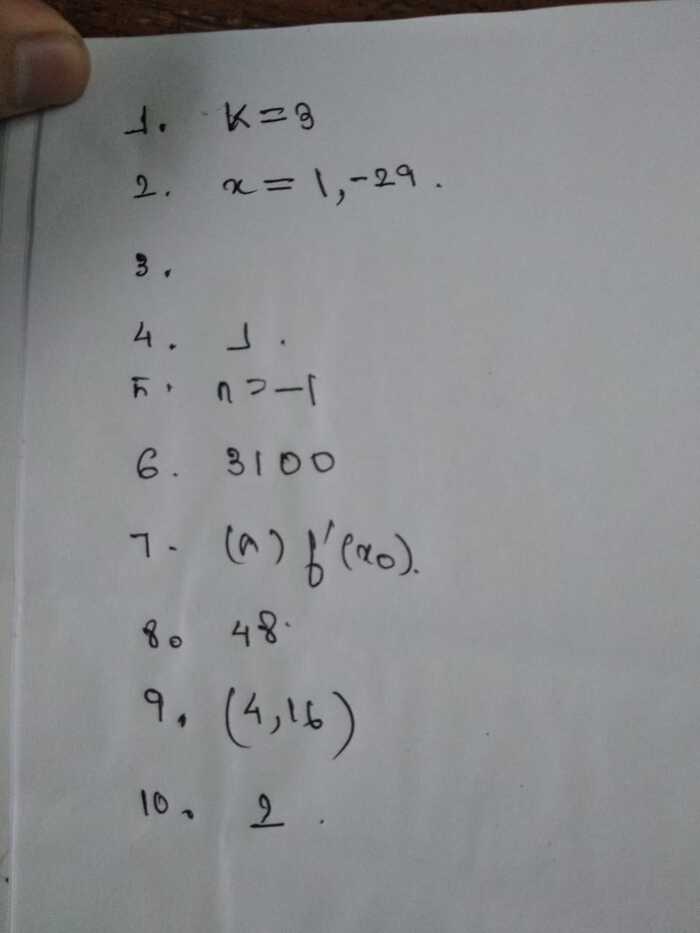 1. K=3
2. x = 1, -29.
3.
4. 1.
5. n = -1
6. 3100
7. (A) f'(x0).
8. 48.
9. (4,16)
10. 2.